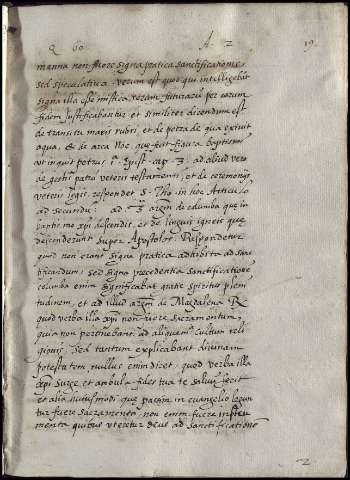 Q 60 A. 2 19
manna non fuere signa pratica sanctificationis
sed speculativa. verum est quod qui intelligebat
signa illa esse mistica rerum futurarũ per earum
fidem justificabantur et similiter dicendum est
de transitu maris rubri, et de petra de qua exivit
aqua, & de arca Noe que fuit figura baptismi
ut inquit petrus 1ª. Epist. cap. 3. ad aliud vero
de gestis patrũ veteris testamenti, et de ceremonijs
veteris legis, respondet S. Tho. in hoc Articulo
ad secundũ. ad 3m argm de columba que in
baptismo xpi descendit, et de linguis igneis que
descenderunt super Apostolos. Respondetur
quod non erant signa pratica adhibita ad sanc
tificandum: sed signa precedentis sanctificationis
columba enim significabat gratie spiritus pleni
tudinem, et ad illud argm de Magdalena R.
quod verba illa xpi non fuere sacramentum,
quia non pertinebant ad aliquem cultum reli
gionis. sed tantum explicabant divinam
potestatem nullus enim dicet, quod verba illa
xpi surge et ambula fides tua te salvũ fecit
et alia huiusmodi que passim in evangelio legun
tur fuere sacramenta. non enim fuere instru
menta quibus uteretur deus ad sanctificationẽ
2